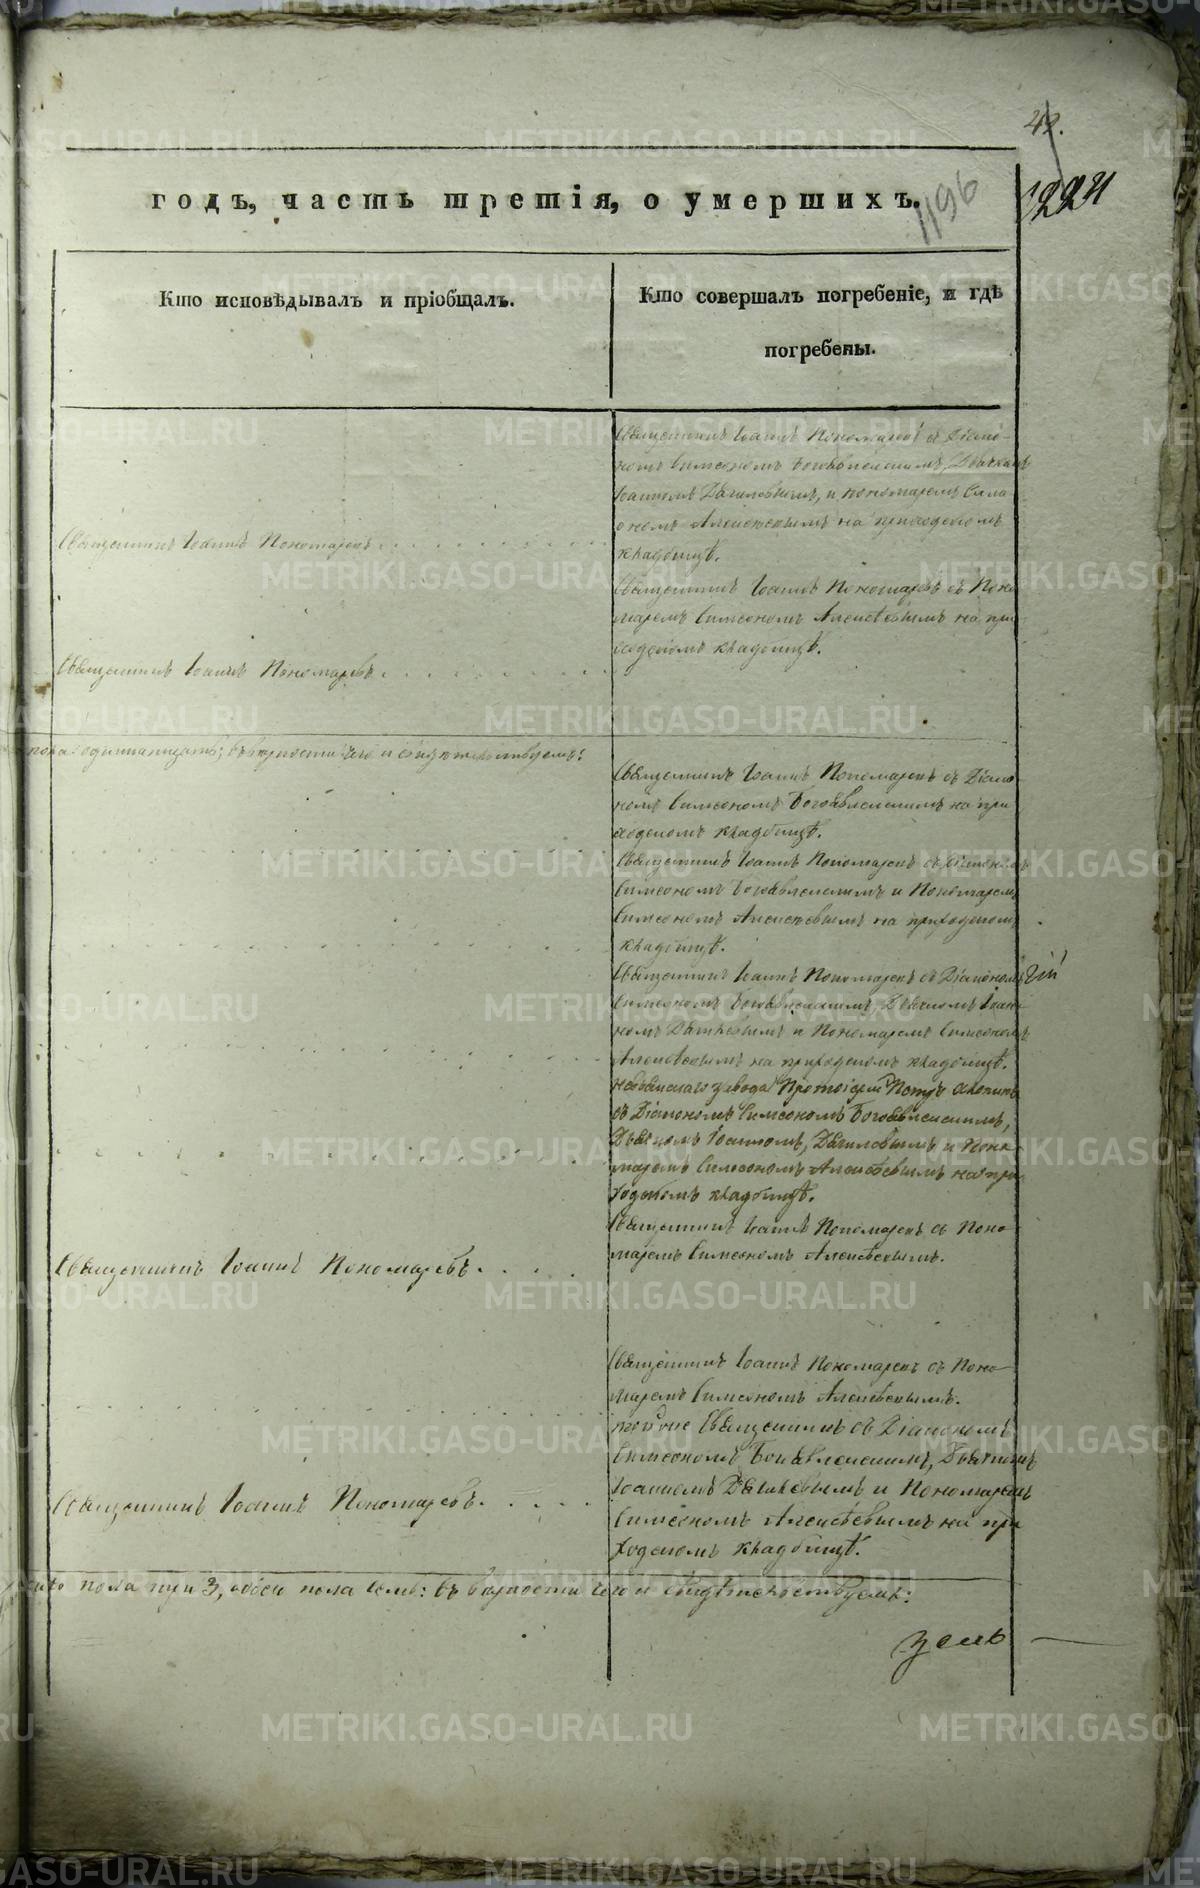 42.
1224
1196
годъ, часть третія, о умершихъ.
Кто исповѣдывалъ и пріобщалъ.
Кто совершалъ погребеніе, и гдѣ
погребены.
Священникъ Іоаннъ Пономаревъ съ Діако-
номъ Симеономъ Богоявленскимъ, Дьячкомъ
Іоанномъ и пономаремъ Симе-
ономъ Алексѣевымъ на приходскомъ
кладбищѣ.
Священникъ Іоаннъ Пономаревъ
Священникъ Іоаннъ Пономаревъ съ Поно
маремъ Симеономъ Алексѣевымъ на при
ходскомъ кладбищѣ.
Священникъ Іоаннъ Пономаревъ
пола одиннадцать; въ вѣрности чего и свидѣтельствуемъ:
Священникъ Іоаннъ Пономаревъ съ Діако
номъ Симеономъ Богоявленскимъ на при
ходскомъ кладбищѣ.
Священникъ Іоаннъ Пономаревъ съ Діакономъ
Симеономъ Богоявленскимъ и Пономаремъ
Симеономъ Алексѣевымъ на приходскомъ
кладбищѣ.
Священникъ Іоаннъ Пономаревъ съ Діакономъ
Симеономъ Богоявленскимъ Дьячкомъ Іоан
номъ и Пономаремъ Симеономъ
Алексѣевымъ на приходскомъ кладбищѣ.
завода Протоіерей Петръ
съ Діакономъ Симеономъ Богоявленскимъ,
Дьячкомъ Іоанномъ, и Поно
маремъ Симеономъ Алексѣевымъ на при
ходскомъ кладбищѣ.
Священникъ Іоаннъ Пономаревъ съ Поно
маремъ Симеономъ Алексѣевымъ.
Священникъ Іоаннъ Пономаревъ
Священникъ Іоаннъ Пономаревъ съ Поно
маремъ Симеономъ Алексѣевымъ.
Священникъ съ Діакономъ
Симеономъ Богоявленскимъ, Дьячкомъ
Іоанномъ и Пономаремъ
Симеономъ Алексѣевымъ на при
ходскомъ кладбищѣ.
Священникъ Іоаннъ Пономаревъ
пола 3, обоего пола семь: въ вѣрности чего и свидѣтельствуемъ:
METRIKI.GASO-URAL.RU